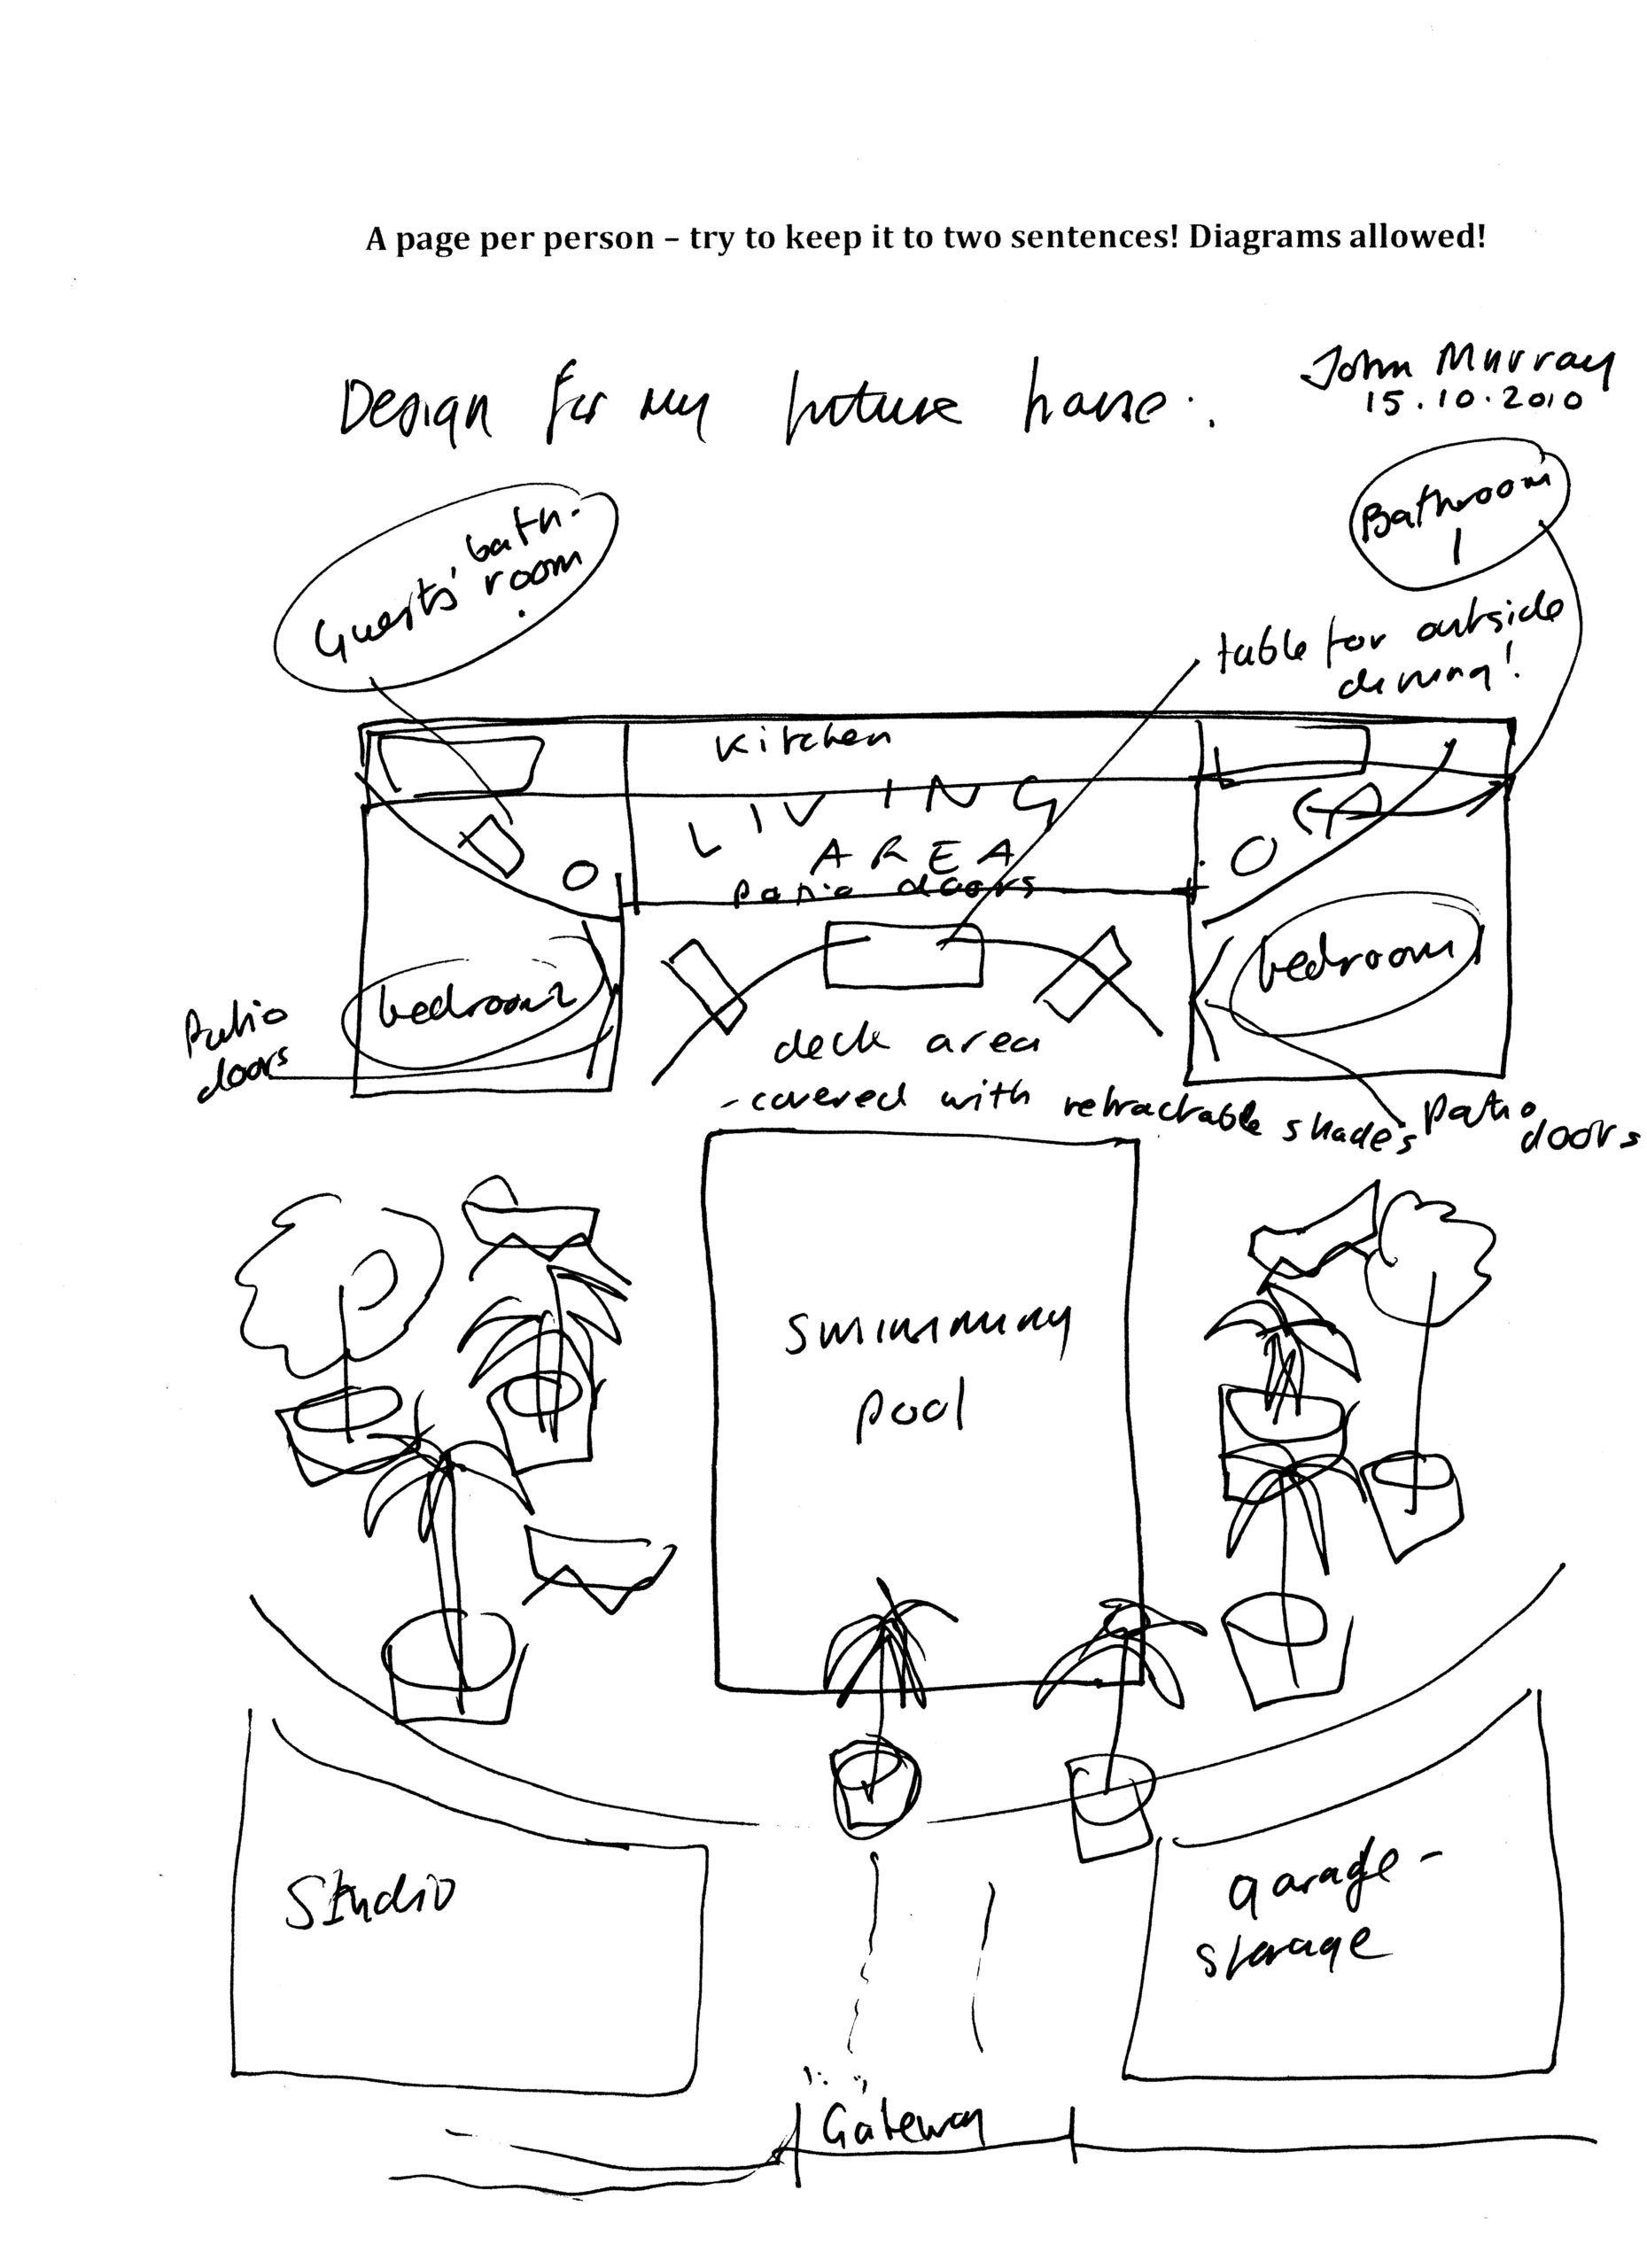 A page per person – try to keep it to two sentences! Diagrams allowed!
John Murray
15.10.2010
Design for my future house:
Guests' bath-
room
Bathroom
1
table for outside
dining!
Kitchen
LIVING
AREA
patio doors
bedroom 2
bedroom 1
Patio
doors
deck area
- covered with retractable shades
patio
doors
swimming
pool
Studio
garage-
storage
Gateway